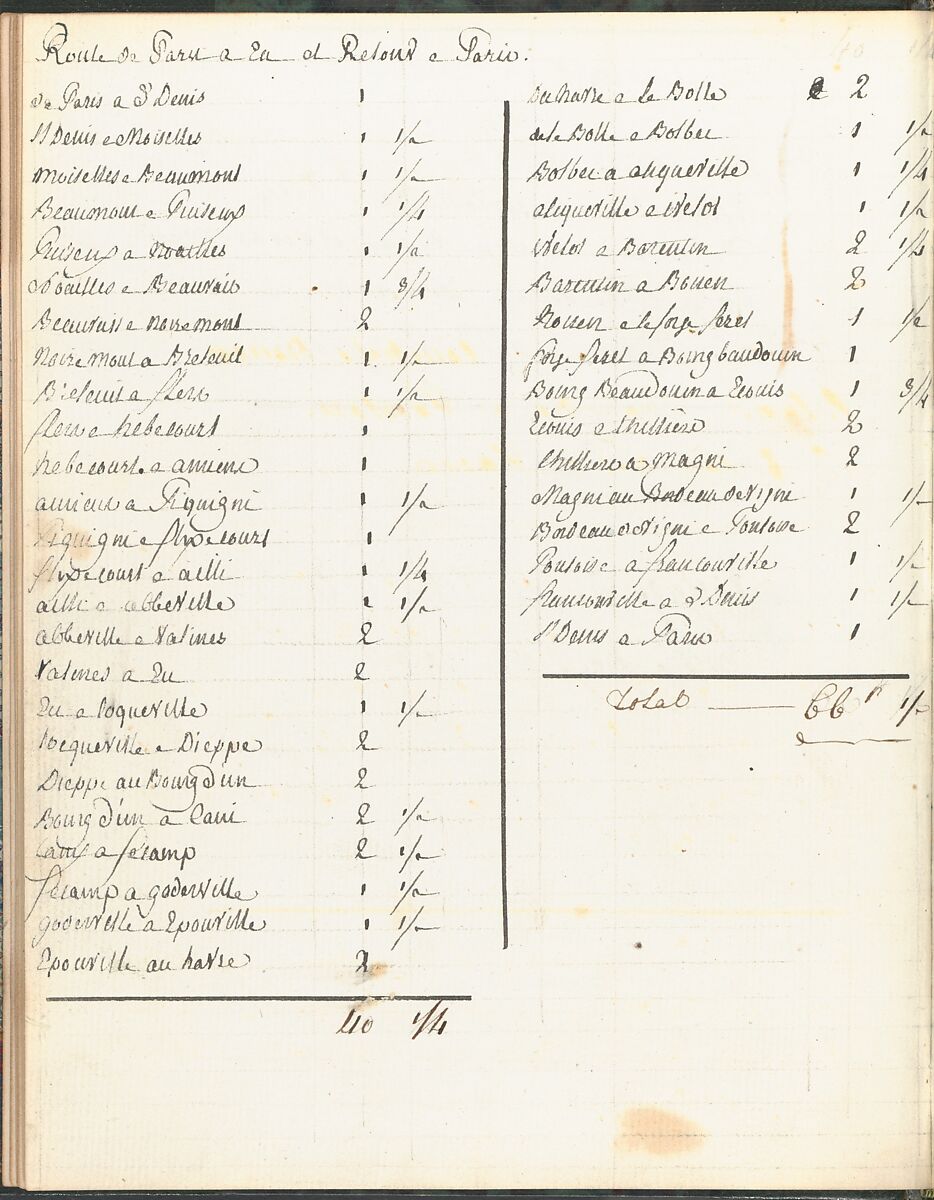 Route de Paris a Eu et Retour a Paris.
de Paris a St Denis 1
St Denis a Moiselles 1 1/2
Moiselles a Beaumont 1 1/2
Beaumont a Puiseux 1 1/4
Puiseux a Noailles 1 1/2
Noailles a Beauvais 1 3/4
Beauvais a Noiremont 2
Noiremont a Breteuil 1 1/2
Breteuil a flers 1 1/2
flers a hebecourt 1
hebecourt a amiens 1
amiens a Piquigni 1 1/2
Piquigni a flixecourt 1
flixecourt a ailli 1 1/4
ailli a abbeville 1 1/2
abbeville a Valines 2
Valines a Eu 2
Eu a Toqueville 1 1/2
Tocqueville a Dieppe 2
Dieppe au Bourgdun 2
Bourg d'un a Cani 2 1/2
Cany a fécamp 2 1/2
fécamp a goderville 1 1/2
goderville a Epouville 1 1/2
Epouville au havre 2
40 1/4
du havre a la Botte 2
de la Botte a Bolbec 1 1/2
Bolbec a aliqueville 1 1/4
aliqueville a ivetot 1 1/2
ivetot a Barentin 2 1/4
Barentin a Rouen 2
Rouen a la forge feret 1 1/2
forge feret a Bourgbaudouin 1
Bourg Beaudouin a Ecouis 1 3/4
Ecouis a thilliere 2
thilliere a Magni 2
Magni au Bordeau de Vigni 1 1/2
Bordeau de Vigni a Pontoise 2
Pontoise a franconville 1 1/2
franconville a St Denis 1 1/2
St Denis a Paris 1
Total 66 p 1/2